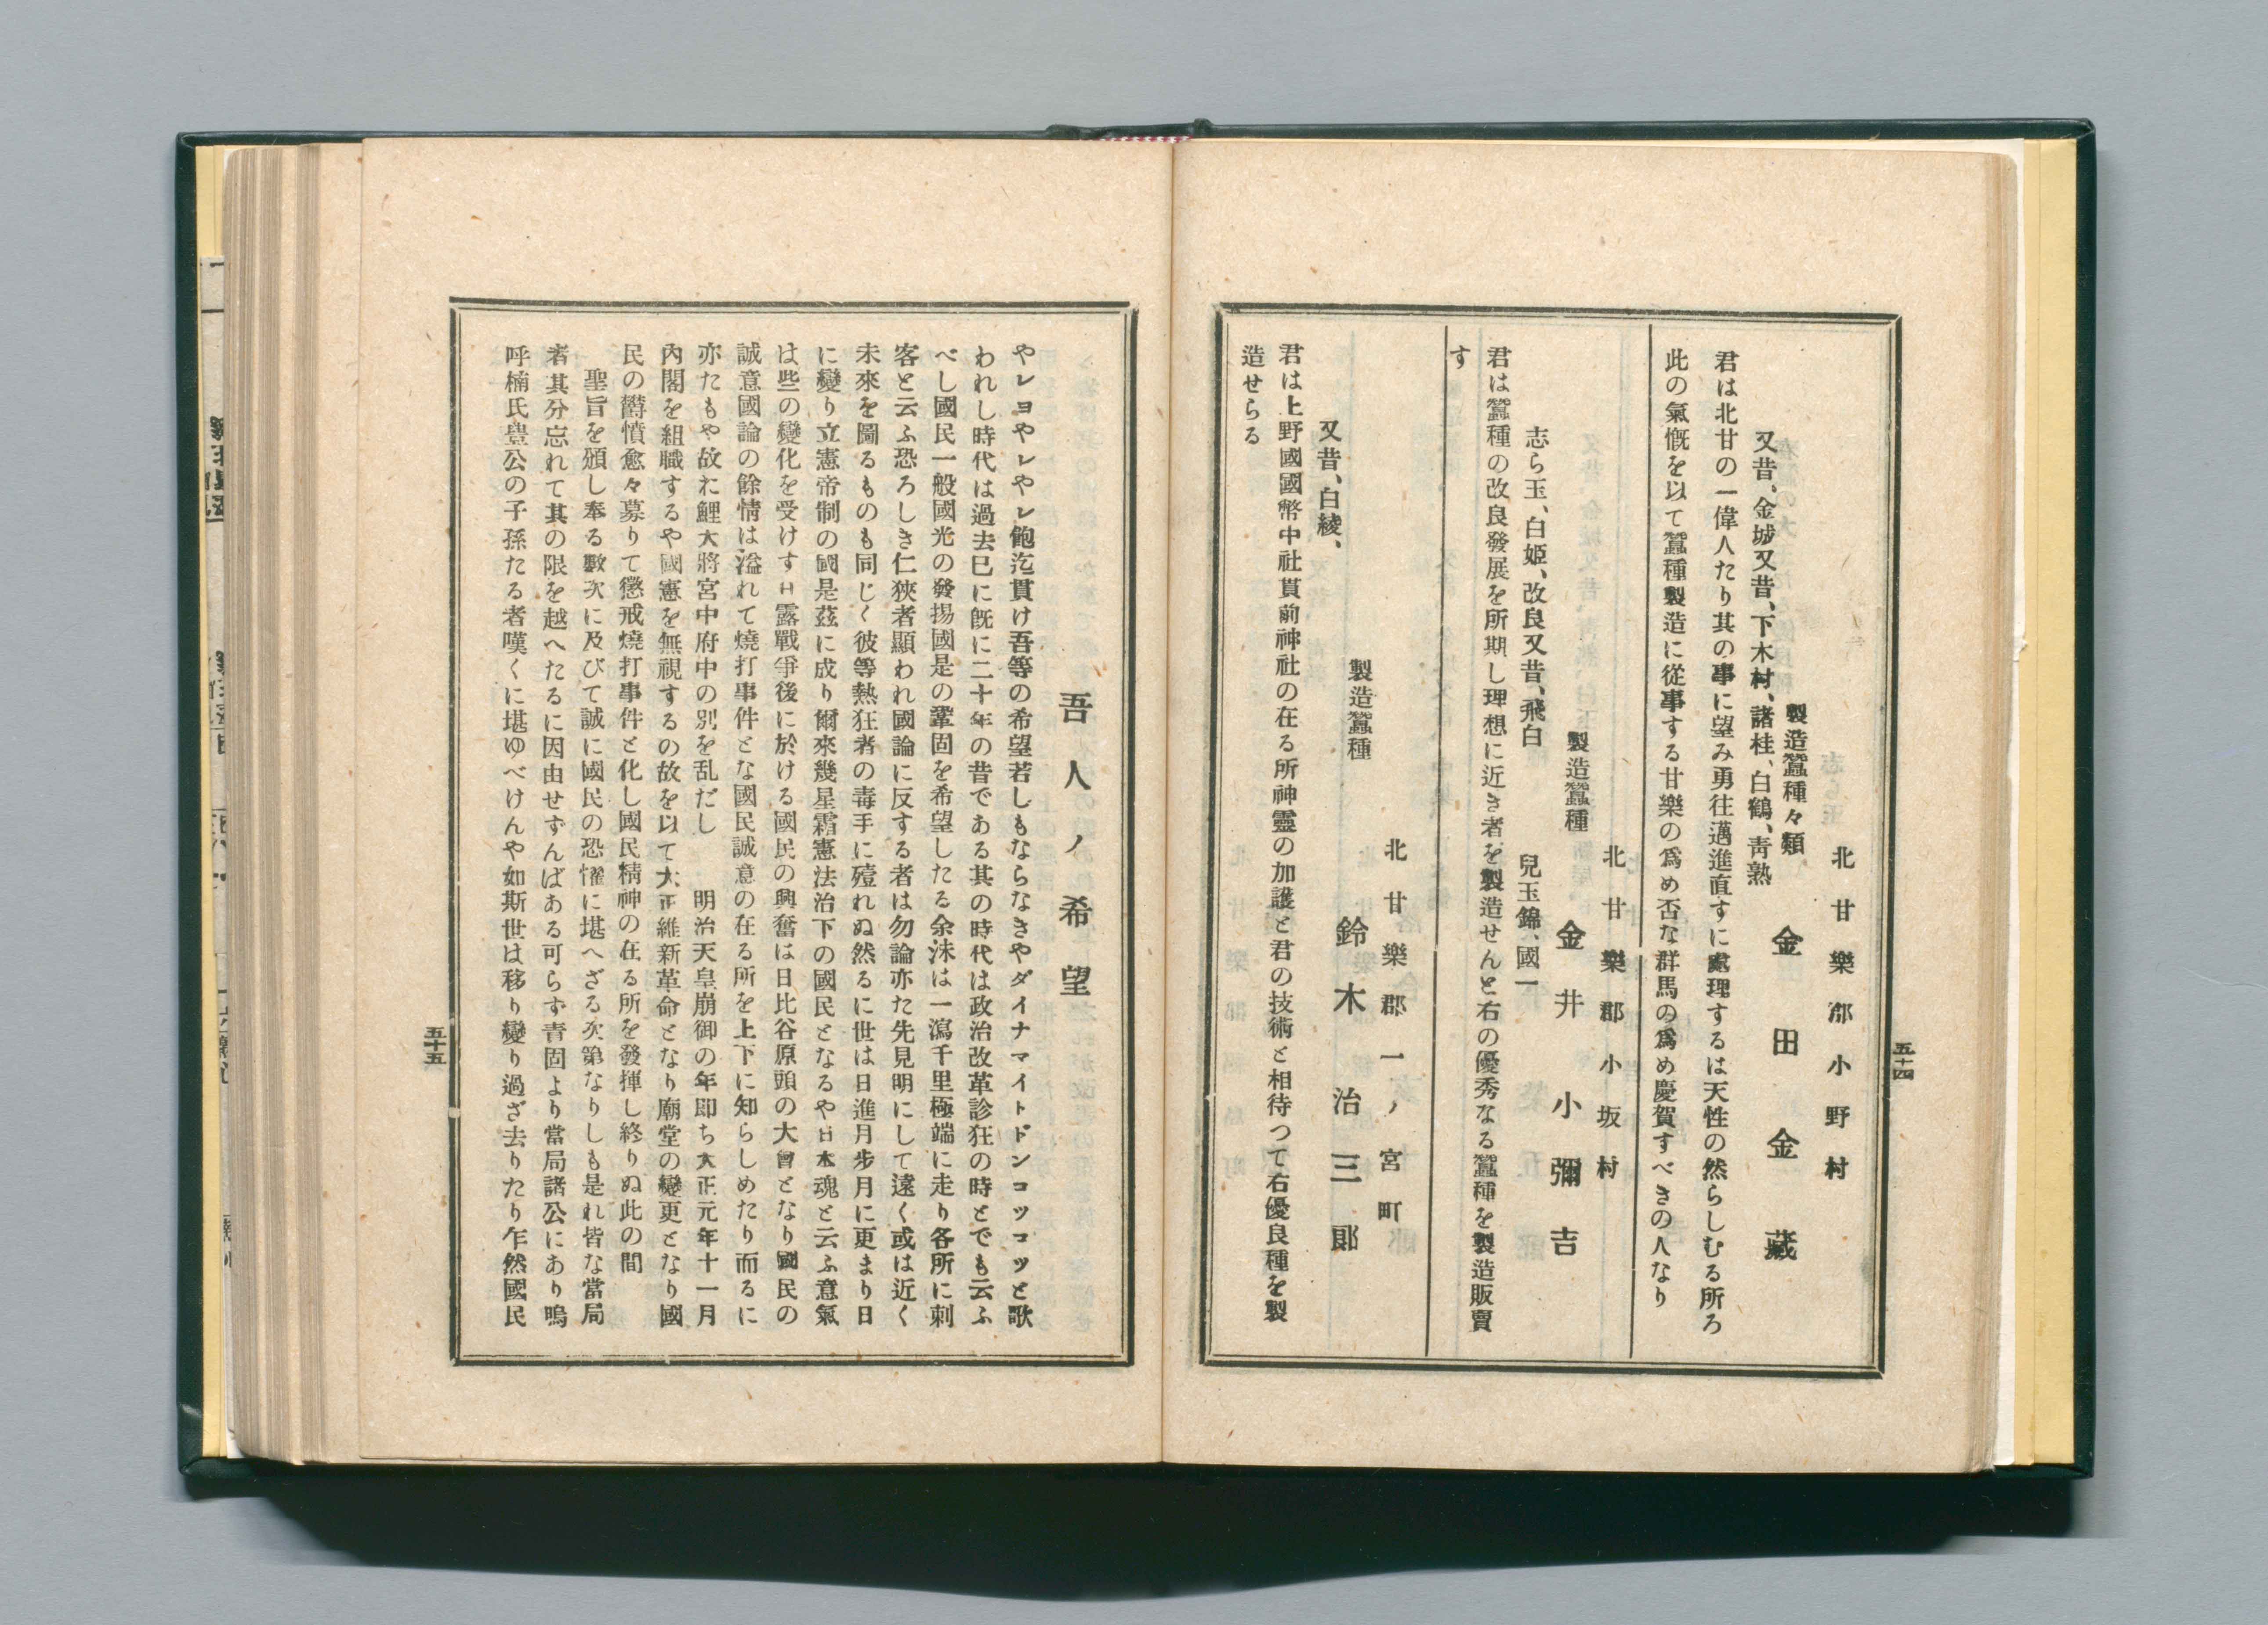 五十四
北甘樂郡小野村
製造蠶種々類
金田金藏
又昔、金城又昔、下木村、諸桂、白鶴、靑熟
君は北甘の一偉人たり其の事に望み勇往邁進直すに處理するは天性の然らしむる所ろ
此の氣慨を以て蠶種製造に從事する甘樂の爲め否な群馬の爲め慶賀すべきの人なり
北甘樂郡小坂村
製造蠶種
金井小彌吉
志ら玉、白姬、改良又昔、飛白
兒玉錦、國一
君は蠶種の改良發展を所期し理想に近き者を製造せんと右の優秀なる蠶種を製造販賣
す
北甘樂郡一ノ宮町
製造蠶種
鈴木治三郞
又昔、白綾、
君は上野國國幣中社貫前神社の在る所神靈の加護と君の技術と相待つて右優良種を製
造せらる
吾人ノ希望
やレヨやレやレ飽迄貫け吾等の希望若しもならなきやダイナマイトドンコツコツと歌
われし時代は過去已に旣に二十年の昔である其の時代は政治改革診狂の時とでも云ふ
べし國民一般國光の發揚國是の鞏固を希望したる余洙は一瀉千里極端に走り各所に刺
客と云ふ恐ろしき仁狹者顯われ國論に反する者は勿論亦た先見明にして遠く或は近く
未來を圖るものも同じく彼等熱狂者の毒手に殪れぬ然るに世は日進月步月に更まり日
に變り立憲帝制の國是茲に成り爾來幾星霜憲法治下の國民となるや日本魂と云ふ意氣
は些の變化を受けす日露戰爭後に於ける國民の興奮は日比谷原頭の大會となり國民の
誠意國論の餘情は溢れて燒打事件とな國民誠意の在る所を上下に知らしめたり而るに
亦たもや故れ鯉大將宮中府中の別を乱だし　明治天皇崩御の年卽ち大正元年十一月
內閣を組職するや國憲を無視するの故を以て大正維新革命となり廟堂の變更となり國
民の欝憤愈々募りて懲戒燒打事件と化し國民精神の在る所を發揮し終りぬ此の間
聖旨を頒し奉る數次に及びて誠に國民の恐懼に堪へざる次第なりしも是れ皆な當局
者其分忘れて其の限を越へたるに因由せずんばある可らず靑固より當局諸公にあり鳴
呼楠氏豊公の子孫たる者嘆くに堪ゆべけんや如斯世は移り變り過ぎ去りたり乍然國民
五十五